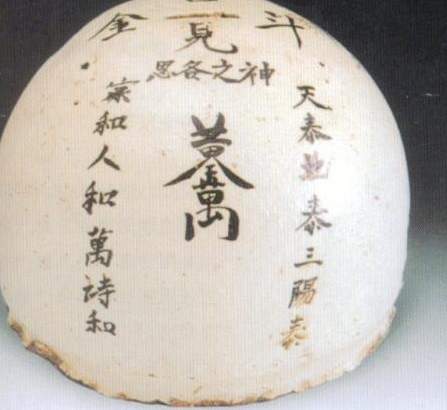 斗一金
見
神之各思
天泰地泰三陽泰
黃金萬
和人和萬詩和